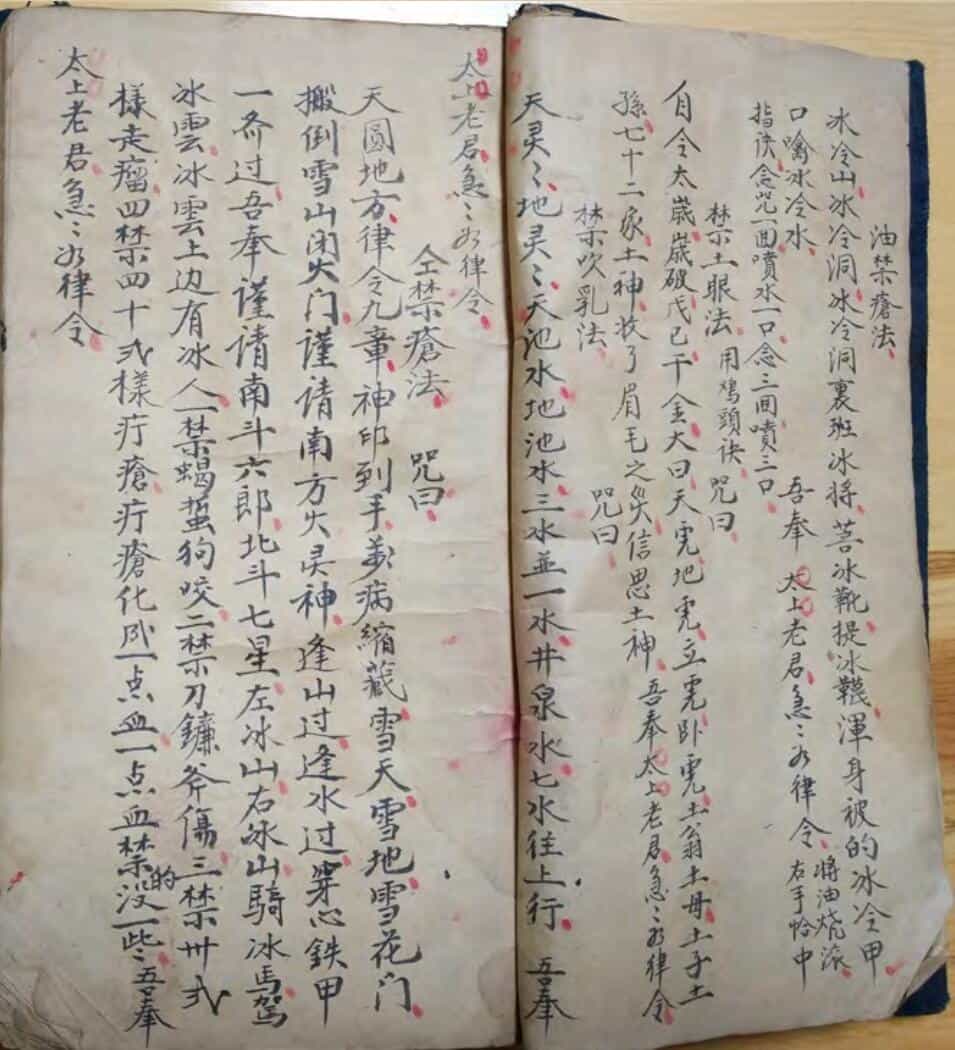 油禁瘡法
冰冷山冰冷洞冰冷洞裏班冰将菩冰靴提冰韈渾身被的冰冷甲
口噙冰冷水 吾奉太上老君急〻如律令 将油烧滚
指诀念咒一面噴水一口念三面噴三口 右手恰中
禁土眼法 用鸡頭诀 咒曰
自令太歲歲破戊己干金大曰天宪地宪立宪卧宪土翁土母土子土
孫七十二家土神收了眉毛之災信思土神 吾奉太上老君急〻如律令
禁吹乳法 咒曰
天灵〻地灵〻天池水地池水三水並一水井泉水七水往上行 吾奉
太上老君急〻如律令
仝禁瘡法 咒曰
天圓地方律令九章神印到手萬病縮藏雪天雪地雪花门
搬倒雪山闭火门谨请南方火灵神逢山过逢水过穿心鉄甲
一齐过吾奉谨请南斗六郎北斗七星左冰山右冰山騎冰馬駕
冰雲冰雲上边有冰人一禁蝎蜇狗咬二禁刀鐮斧傷三禁卅弍
樣走瘤四禁四十弍樣疔瘡疔瘡化风一点血一点血禁的没一些〻吾奉
太上老君急〻如律令